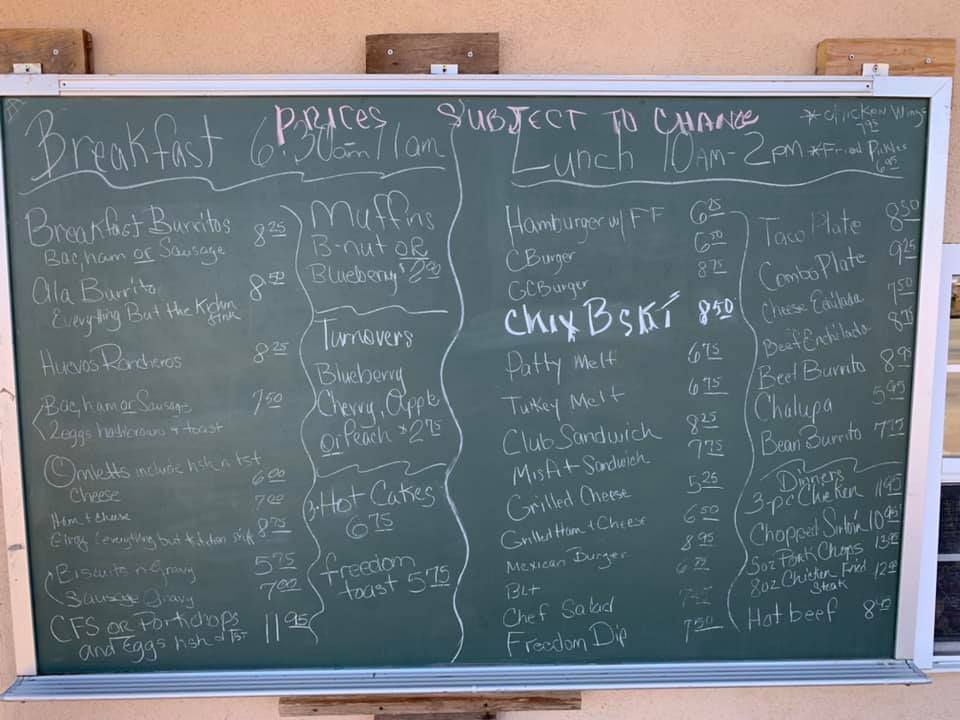 PRICES SUBJECT TO CHANGE
Breakfast 6:30am 11am
Breakfast Burritos 8.25
Bac, ham or Sausage
Ala Burrito 8.50
Everything But the Sink
Huevos Rancheros 8.25
Bac, ham or Sausage 7.50
2 eggs hashbrowns + toast
Omletts include hsh n tst
Cheese 6.00
Ham + cheese 7.00
everything but 8.75
Biscuits n Gravy 5.75
Sausage Gravy 7.00
CFS OR Porkchops 11.95
and eggs hsh
Muffins
B-nut OR
Blueberry $2.00
Turnovers
Blueberry
Cherry, Apple
or Peach $2.75
3-Hot Cakes
6.75
freedom
toast 5.75
Lunch 10AM-2PM
*Chicken Wings
7.95
*Fried Pickles
6.95
Hamburger w/ FF 6.25
CBurger 6.50
GCBurger 8.75
Chix BsKi 8.50
Patty Melt 6.75
Turkey Melt 6.75
Club Sandwich 8.25
MisAt Sandwich 7.75
Grilled Cheese 5.25
Grilled Ham + Cheese 6.50
Mexican Burger 8.95
BLt
Chef Salad
Freedom Dip 7.50
Taco Plate 8.50
Combo Plate 9.25
Cheese Echilada 7.50
Beef Enchilada
Beef Burrito 8.95
Chalupa 5.95
Bean Burrito
Dinners
3-pc Chicken 11.95
Chopped Sirloin 10.95
5oz Pork Chops 13.95
8oz Chicken Fried
Steak
Hot beef